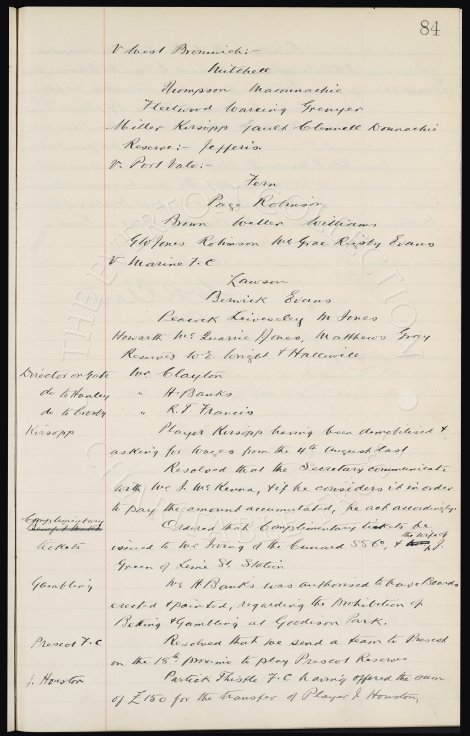 84
V West Bromwich:-
Mitchell
Thompson Maconnachie
Fleetwood Wareing Grenyer
Miller Kirsopp Gault Clennell Donnachie
Reserve:- Jefferis
V. Port Vale:-
Fern
Page Robinson
Brown Weller Williams
Jones Robinson McGrae Rigsby Evans
V Marine F.C
Lawson
Berwick Evans
Peacock Livesley M Jones
Howarth McQuarrie J Jones, Matthews Gray
Reserves Wright & Halliwell
Director or Gate Mr Clayton
do to Hanley " H. Banks
do to Crosby " R.T Francis
Kirsopp Player Kirsopp having been demobilised &
asking for wages from the 4th August last
Resolved that the Secretary communicate
with Mr J. McKenna, & if he considers it in order
to pay the amount accumulated, he act accordingly.
Complimentary Ordered that Complimentary tickets be
tickets issued to Mr Irving of the Cunard SS Co, & J.
Green of Lime St. Station
Gambling Mr H Banks was authorised to have Boards
erected & painted, regarding the Prohibition of
Betting & Gambling at Goodison Park.
Prescot F.C Resolved that we send a team to Prescot
on the 18th proximo to play Prescot Reserve
J. Houston Partick Thistle F.C having offered the sum
of £150 for the transfer of Player J Houston,
THE EVERTON COLLECTION
CHARITABLE TRUST